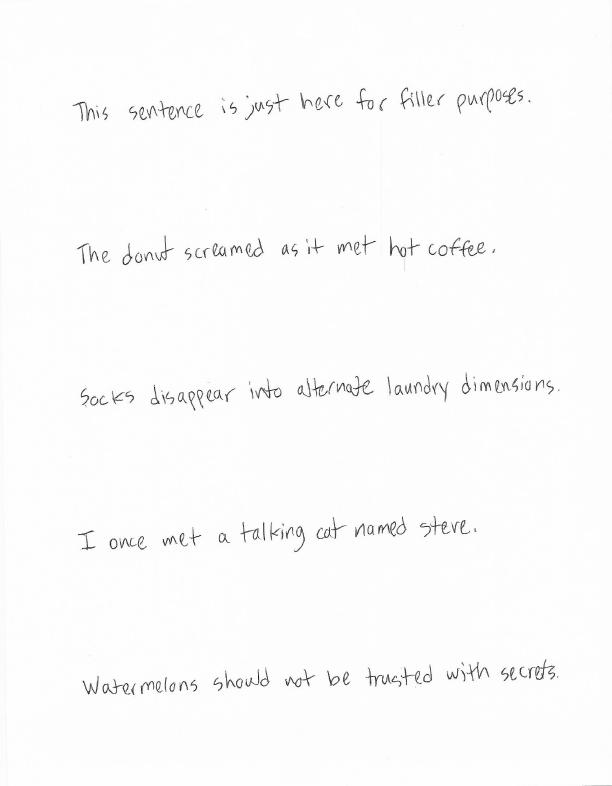 This sentence is just here for filler purposes.
The donut screamed as it met hot coffee.
Socks disappear into alternate laundry dimensions.
I once met a talking cat named steve.
Watermelons should not be trusted with secrets.